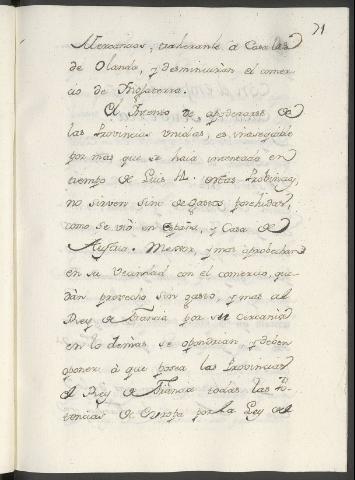 71
Mercancias, traherante á Casa las
de Olanda, y desminuiran el comer
cio de Inglaterra.
El Intento de apoderarse de
las Provincias unidas, es inasequible
por mas que se haia intentado en
tiempo de Luis 14. estas Provincias,
no sirven sino de gastos perdidos,
como se vió en España, y Casa de
Austria. Mejor, y mas aprobechan
en su Vecindad con el comercio, que
dan provecho sin gasto, y mas al
Rey de Francia por su cercania
en lo demas se opondrian, y deben
oponer á que posea las Provincias
el Rey de Francia todas las Po-
tencias de Europa por la Ley del